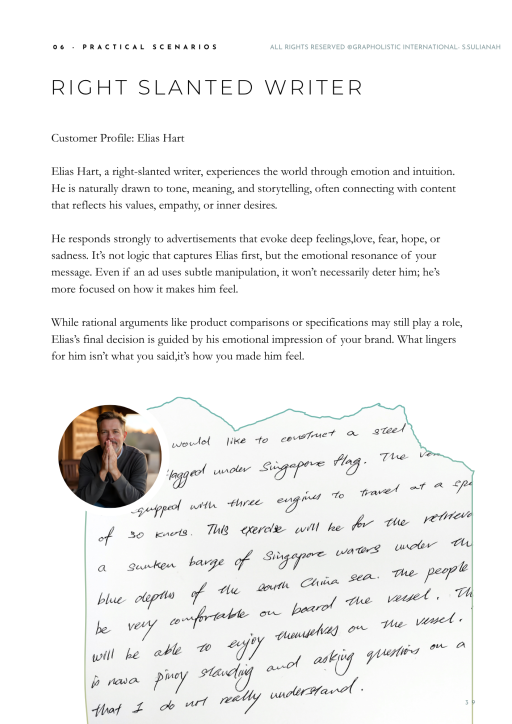 06 - PRACTICAL SCENARIOS
ALL RIGHTS RESERVED @GRAPHOLISTIC INTERNATIONAL- S.SULIANAH
RIGHT SLANTED WRITER
Customer Profile: Elias Hart
Elias Hart, a right-slanted writer, experiences the world through emotion and intuition.
He is naturally drawn to tone, meaning, and storytelling, often connecting with content
that reflects his values, empathy, or inner desires.
He responds strongly to advertisements that evoke deep feelings,love, fear, hope, or
sadness. It's not logic that captures Elias first, but the emotional resonance of your
message. Even if an ad uses subtle manipulation, it won't necessarily deter him; he's
more focused on how it makes him feel.
While rational arguments like product comparisons or specifications may still play a role,
Elias's final decision is guided by his emotional impression of your brand. What lingers
for him isn't what you said,it's how you made him feel.
would like to construct a steel
flagged under Singapore flag. The
equipped with three engines to travel at a spe
of 30 knots. This exercise will be for the retrieve
a sunken barge of Singapore waters under th
blue depths of the south China sea. The people
be very comfortable on board the vessel. Th
will be able to enjoy themselves on the vessel.
is now a pinoy standing and asking questions on a
that I do not really understand.
39